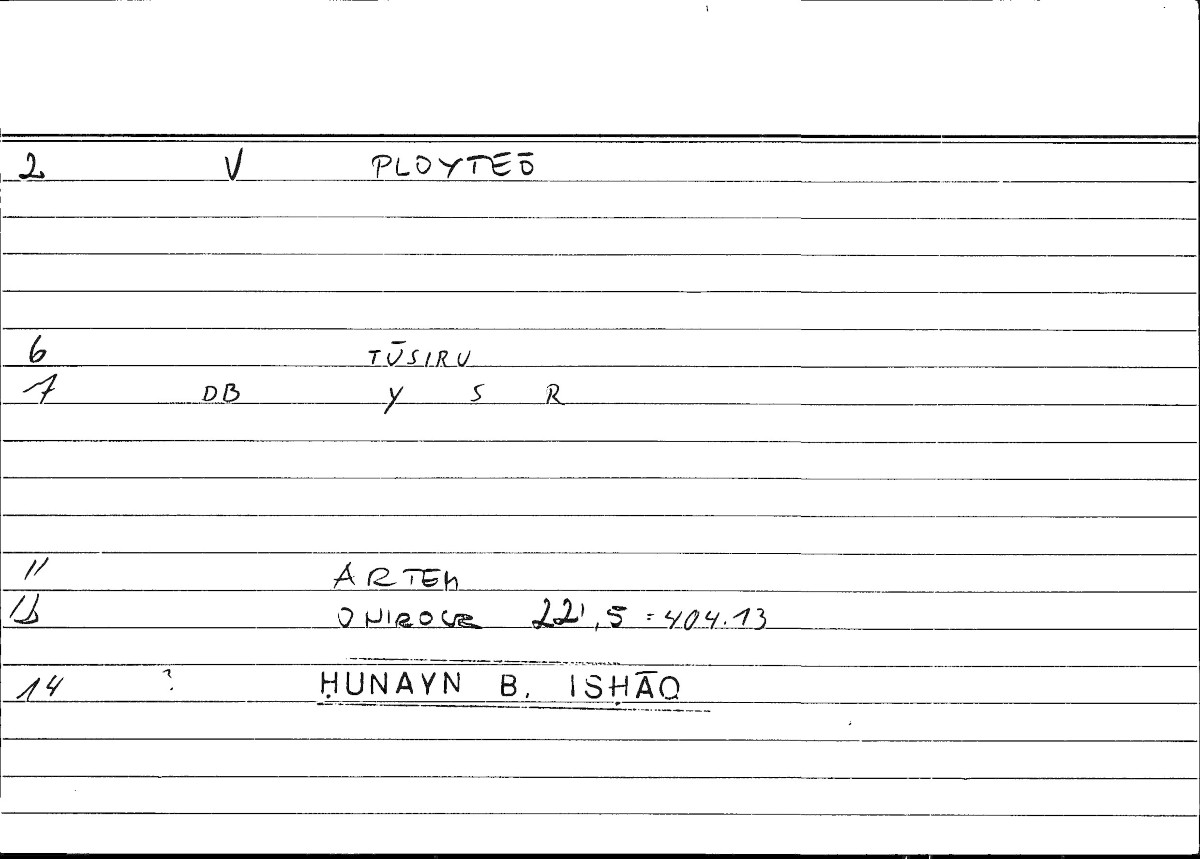 2 V PLOYTEŌ
6 TŪSIRU
7 DB Y S R
11 ARTEM
13 ONIROCR 22',5 = 404.13
14 ? ḤUNAYN B. ISḤĀQ